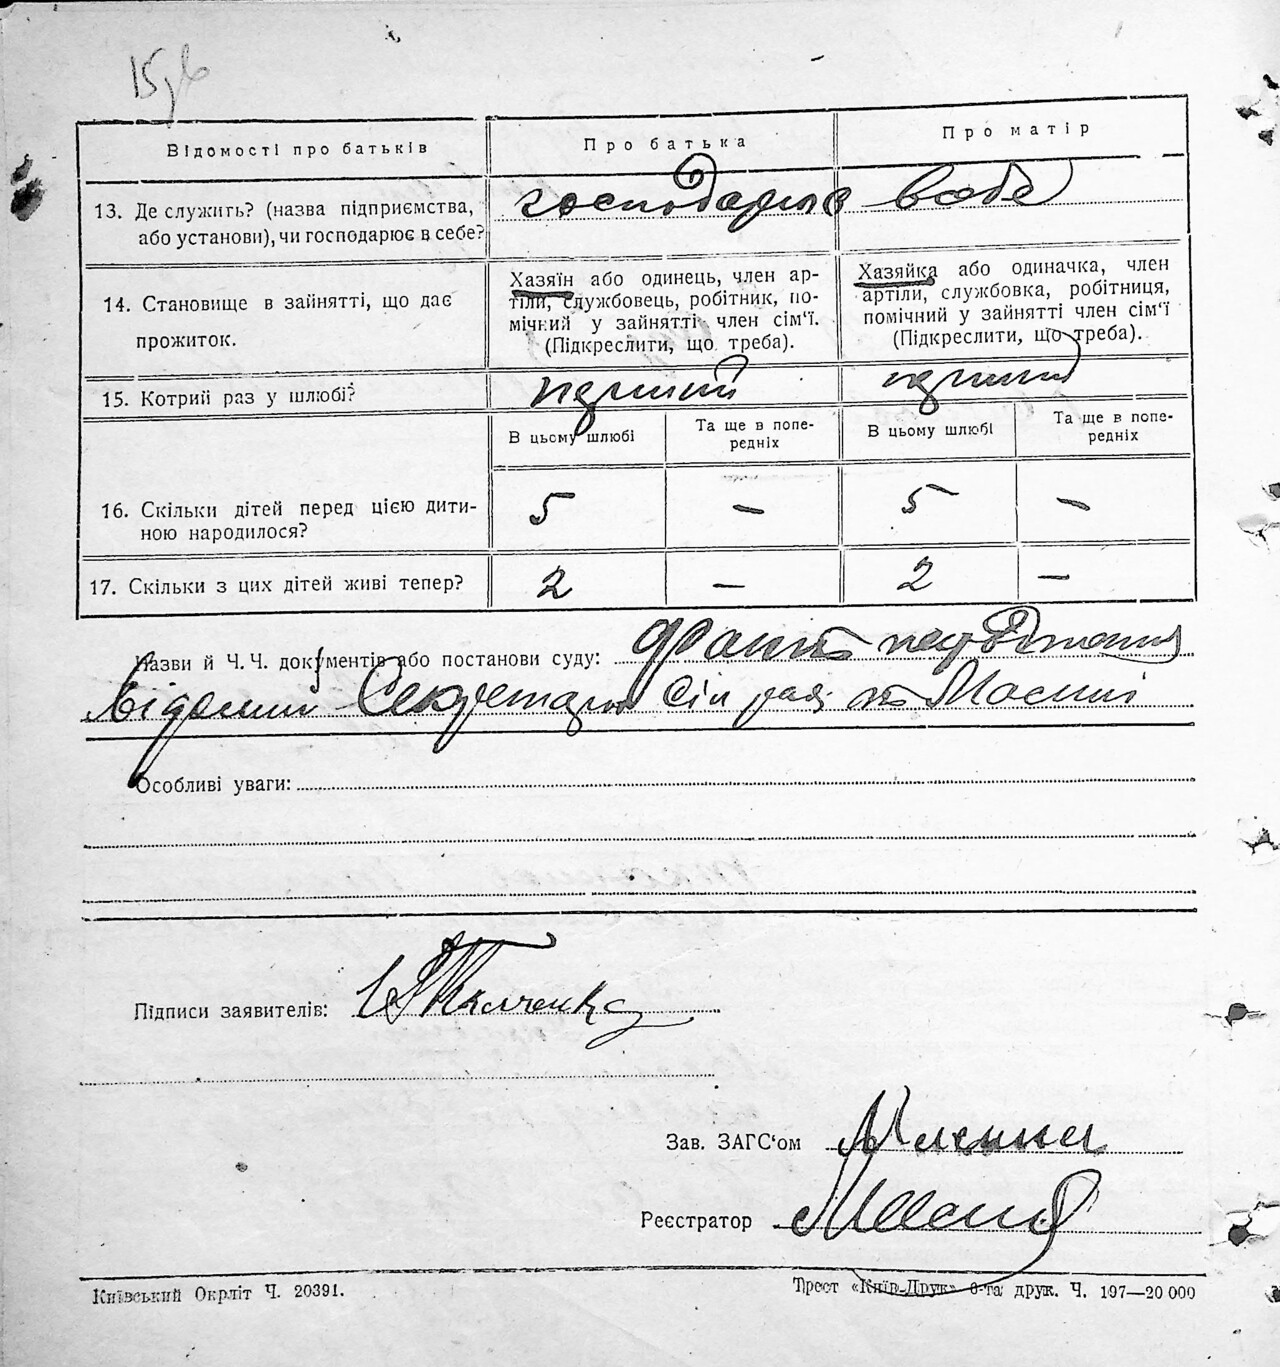 Відомості про батьків
Про батька
Про матір
13. Де служить? (назва підприємства,
або установи), чи господарює в себе?
господарив в себе
14. Становище в зайнятті, що дає
прожиток.
Хазяїн або одинець, член ар-
тіли, службовець, робітник, по-
мічний у зайнятті член сім'ї.
(Підкреслити, що треба).
Хазяйка або одиначка, член
артіли, службовка, робітниця,
помічний у зайнятті член сім'ї
(Підкреслити, що треба).
15. Котрий раз у шлюбі?
перший
перший
В цьому шлюбі
Та ще в попе-
редніх
В цьому шлюбі
Та ще в попе-
редніх
16. Скільки дітей перед цією дити-
ною народилося?
5
—
5
—
17. Скільки з цих дітей живі тепер?
2
—
2
—
Назви й Ч. Ч. документів або постанови суду: Факт народження
Секретарем Сіл ради
Особливі уваги:
Підписи заявителів: Ткаченко
Зав. ЗАГС'ом
Реєстратор
Київський Окрліт Ч. 20391.
Трест «Київ-Друк» 6-та друк. Ч. 197—20 000